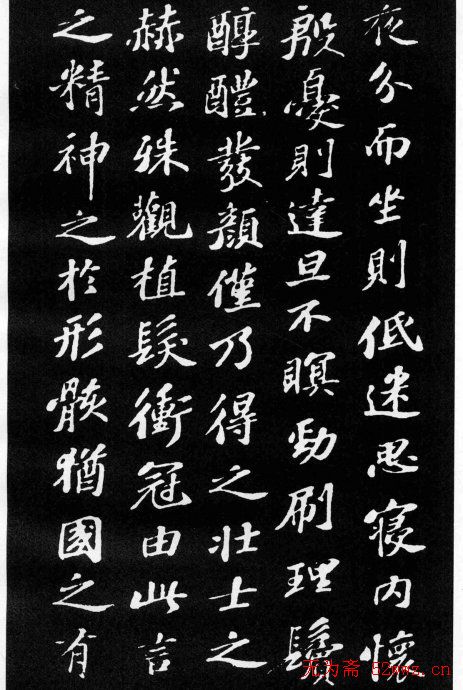 夜分而坐則低迷思寢內懷
殷憂則達旦不瞑勁刷理鬢
醇醴發顏僅乃得之壯士之
赫然殊觀植髮衝冠由此言
之精神之於形骸猶國之有
无为斋 52wwz.cn